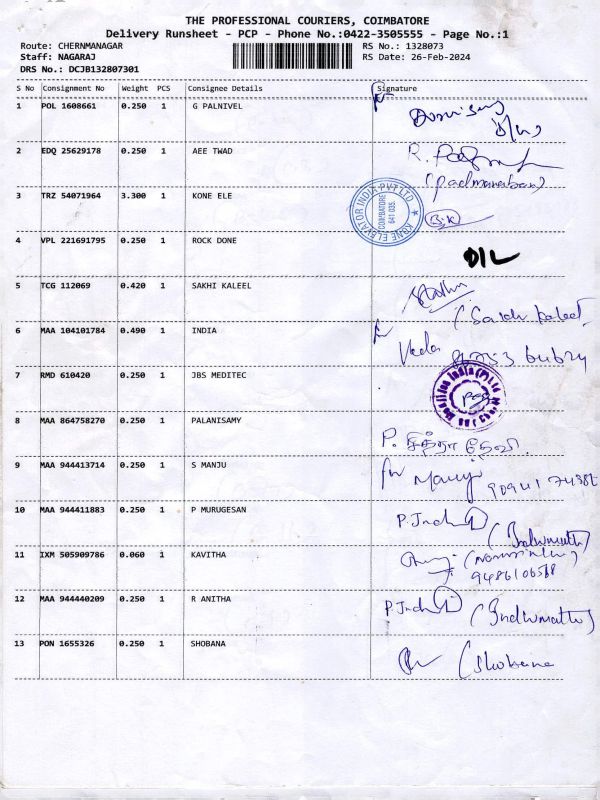 THE PROFESSIONAL COURIERS, COIMBATORE
Delivery Runsheet - PCP - Phone No.:0422-3505555 - Page No.:1
Route: CHERNMANAGAR RS No.: 1328073
Staff: NAGARAJ RS Date: 26-Feb-2024
DRS No.: DCJB132807301
S No Consignment No Weight PCS Consignee Details Signature
1 POL 1608661 0.250 1 G PALNIVEL
2 EDQ 25629178 0.250 1 AEE TWAD
(Padmanaban)
3 TRZ 54071964 3.300 1 KONE ELE
KONE ELEVATOR INDIA PVT LTD. ★
COIMBATORE
641 035.
4 VPL 221691795 0.250 1 ROCK DONE
D/L
5 TCG 112069 0.420 1 SAKHI KALEEL
6 MAA 104101784 0.490 1 INDIA
7 RMD 610420 0.250 1 JBS MEDITEC
8 MAA 864758270 0.250 1 PALANISAMY
P. சித்ரா தேவி.
9 MAA 944413714 0.250 1 S MANJU
10 MAA 944411883 0.250 1 P MURUGESAN
P. Indu (Indhumathi)
11 IXM 505909786 0.060 1 KAVITHA
12 MAA 944440209 0.250 1 R ANITHA
P. Indu (Indhumathi)
13 PON 1655326 0.250 1 SHOBANA
(Shobana